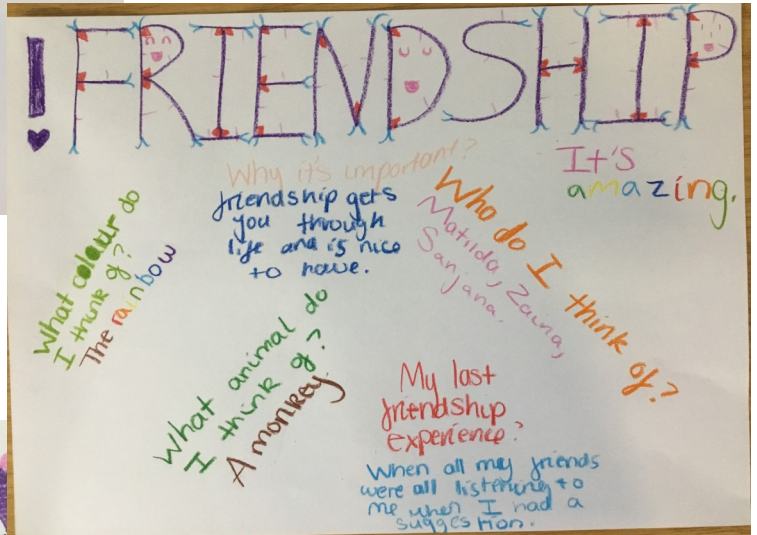 ! FRIENDSHIP
It's
amazing.
Why it's important?
friendship gets
you through
life and is nice
to have.
What colour do
I think of?
The rainbow
Who do I think of?
Matilda, Zaina,
Sanjana.
What animal do
I think of?
A monkey
My last
friendship
experience?
When all my friends
were all listening to
me when I had a
suggestion.